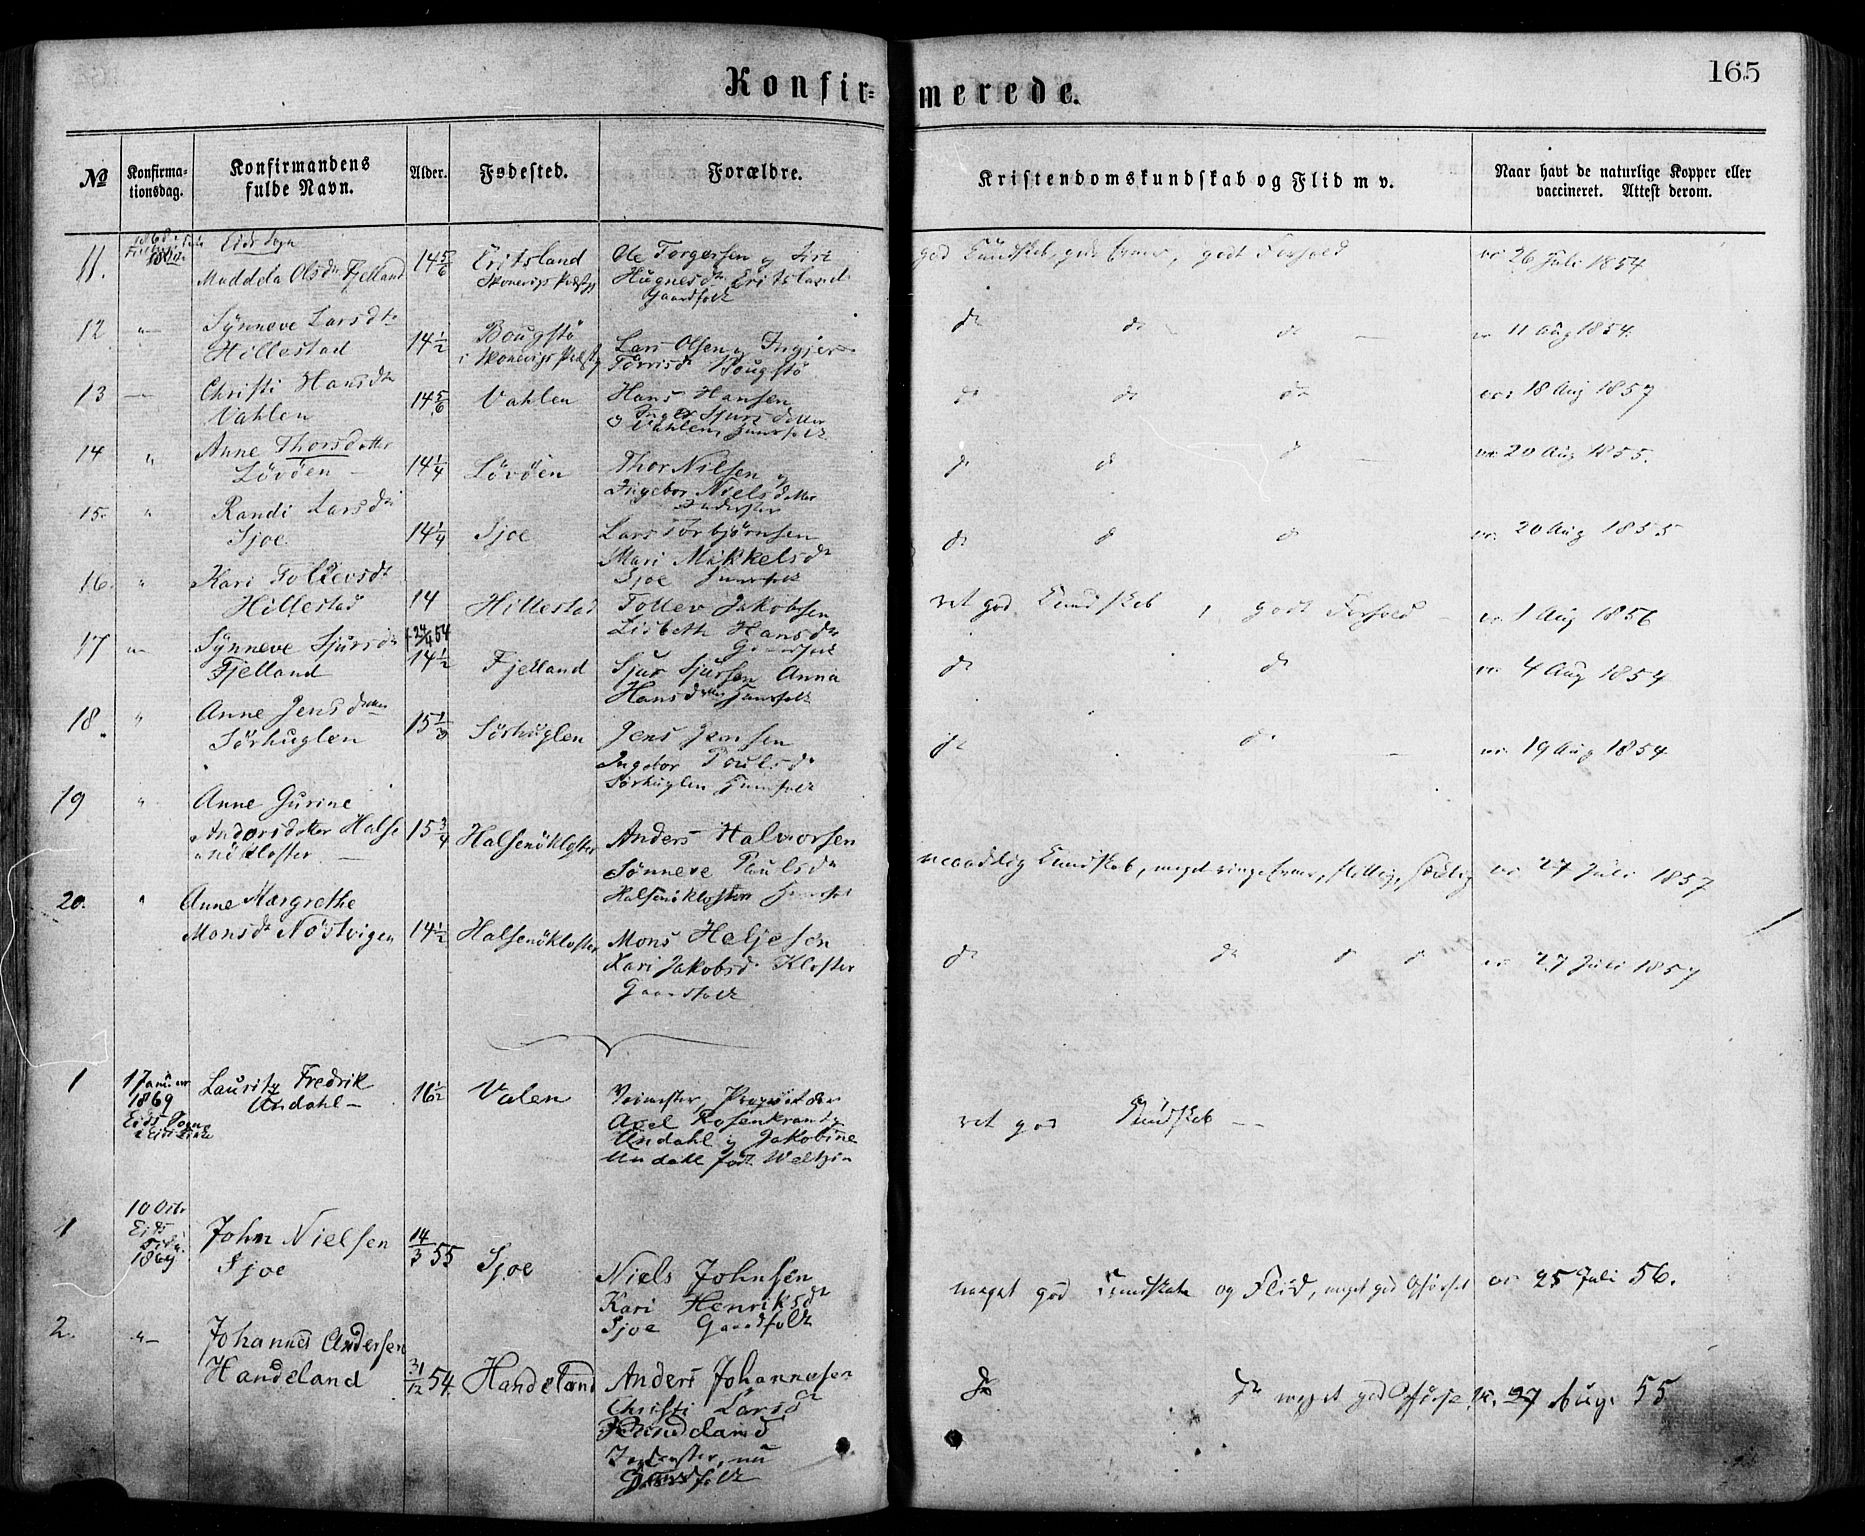 165
Konfir= merede.
№
Konfirma-
tionsdag.
Konfirmandens
fulde Navn.
Alder.
Fødested.
Forældre.
Kristendomskundskab og Flid m v.
Naar havt de naturlige Kopper eller
vaccineret. Attest derom.
11.
Eids Sogn
Maddela Olsdtr Fjelland
14 5/6
Eritsland
Skonevigs Præstgj
Ole Torgersen og Siri
Hugnesdtr Eritsland
Gaardfolk
god Kundskab, gode Evner, godt Forhold
vc 26 Juli 1854
12
"
Synneve Larsdtr
Hillestad
14 1/2
Bougstö
i Skonevigs Præstgj
Lars Olsen og Ingjer
Torrisdr Bougstö
dt dt dt
vc 11 Aug 1854.
13
Christi Hansdtr
Vahlen
14 5/6
Vahlen
Hans Hansen
og Inger Sjursdatter
Vahlen, Huusfolk
dt dt dt
vc 18 Aug 1857
14
"
Anne Thorsdatter
Lövöen
14 1/4
Lövöen
Thor Nilsen og
Ingebor Nielsdatter
Inderster
dt dt dt
vc 20 Aug 1855.
15.
"
Randi Larsdtr
Sjoe
14 1/4
Sjoe
Lars Torbjörnsen
Mari Mikkelsdtr
Sjoe Huusfolk
dt dt dt
vc. 20 Aug 1855
16.
"
Kari Tollevsdtr
Hillestad
14
Hillestad
Tollev Jakobsen
Lisbeth Hansdtr
Gaardfolk
ret god Kundskab, godt Forhold
vc 1 Aug 1856
17
"
Synneve Sjursdtr
Fjelland
24/4 54
14 1/2
Fjelland
Sjur Sjursen Anna
Hansdtr Huusfolk
dt dt
vc. 4 Aug 1854
18.
"
Anne Jensdtr
Sörhuglen
15 1/3
Sörhuglen
Jens Jensen
Ingebor Poulsdtr
Sörhuglen Huusfolk
dt dt
vc. 19 Aug 1854
19
"
Anne Gurine
Andersdatter Halse
nökloster
15 3/4
Halsenökloster
Anders Halvorsen
Sönneve Paulsdtr
Halsenökloster Huusfolk
maadelig Kundskab, meget ringe Evner, flittig, skikkelig
vc 27 Juli 1857
20.
"
Anne Margrethe
Monsdtr Nöstvigen
14 1/2
Halsenökloster
Mons Heljesön
Kari Jakobsdtr Kloster
Gaardfolk
dt dt dt dt
vc 27 Juli 1857
1
17 Januar
1869
Lauritz Fredrik
Undahl
16 1/2
Valen
Proprietær
Axel Rosenkrantz
Undahl og Jakobine
Undahl født Weltzin
ret god Kundskab
1
10 Octbr
Eids
1869
John Nielsen
Sjoe
14/3 55
Sjoe
Niels Johnsen
Kari Henriksdtr
Sjoe Gaardfolk
meget god Kundskab og Flid, meget god Opførsel
vc 25 Juli 56.
2.
"
Johannes Andersen
Handeland
31/12 54
Handeland
Anders Johannesen
Christi Larsdtr
Handeland
Inderster, nu
Gaardfolk
dt dt meget god Opførsel
vc. 27 Aug. 55